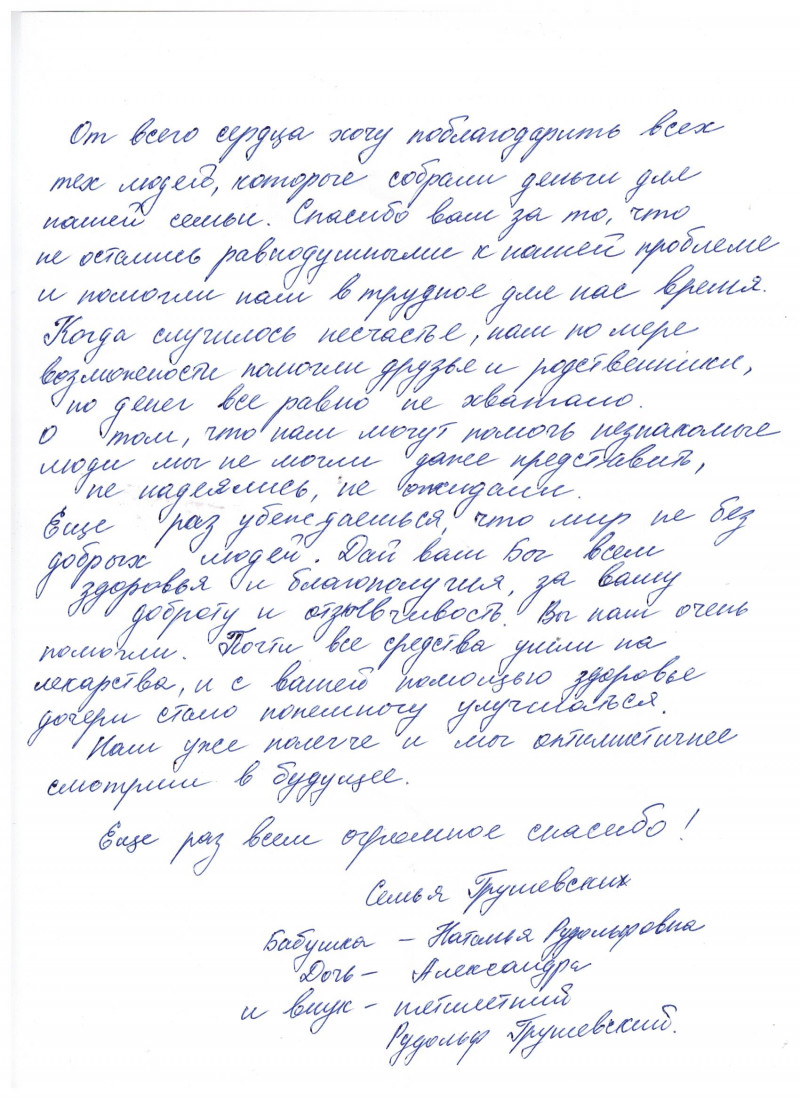 От всего сердца хочу поблагодарить всех
тех людей, которые собрали деньги для
нашей семьи. Спасибо вам за то, что
не остались равнодушными к нашей проблеме
и помогли нам в трудное для нас время.
Когда случилось несчастье, нам по мере
возможности помогли друзья и родственники,
но денег все равно не хватало.
О том, что нам могут помочь незнакомые
люди мы не могли даже представить,
не надеялись, не ожидали.
Еще раз убеждаешься, что мир не без
добрых людей. Дай вам Бог всем
здоровья и благополучия, за вашу
доброту и отзывчивость. Вы нам очень
помогли. Почти все средства ушли на
лекарства, и с вашей помощью здоровье
дочери стало понемногу улучшаться.
Нам уже полегче и мы оптимистичнее
смотрим в будущее.
Еще раз всем огромное спасибо!
Семья Грушевских
Бабушка – Наталья Рудольфовна
Дочь – Александра
и внук – пятилетний
Рудольф Грушевский.